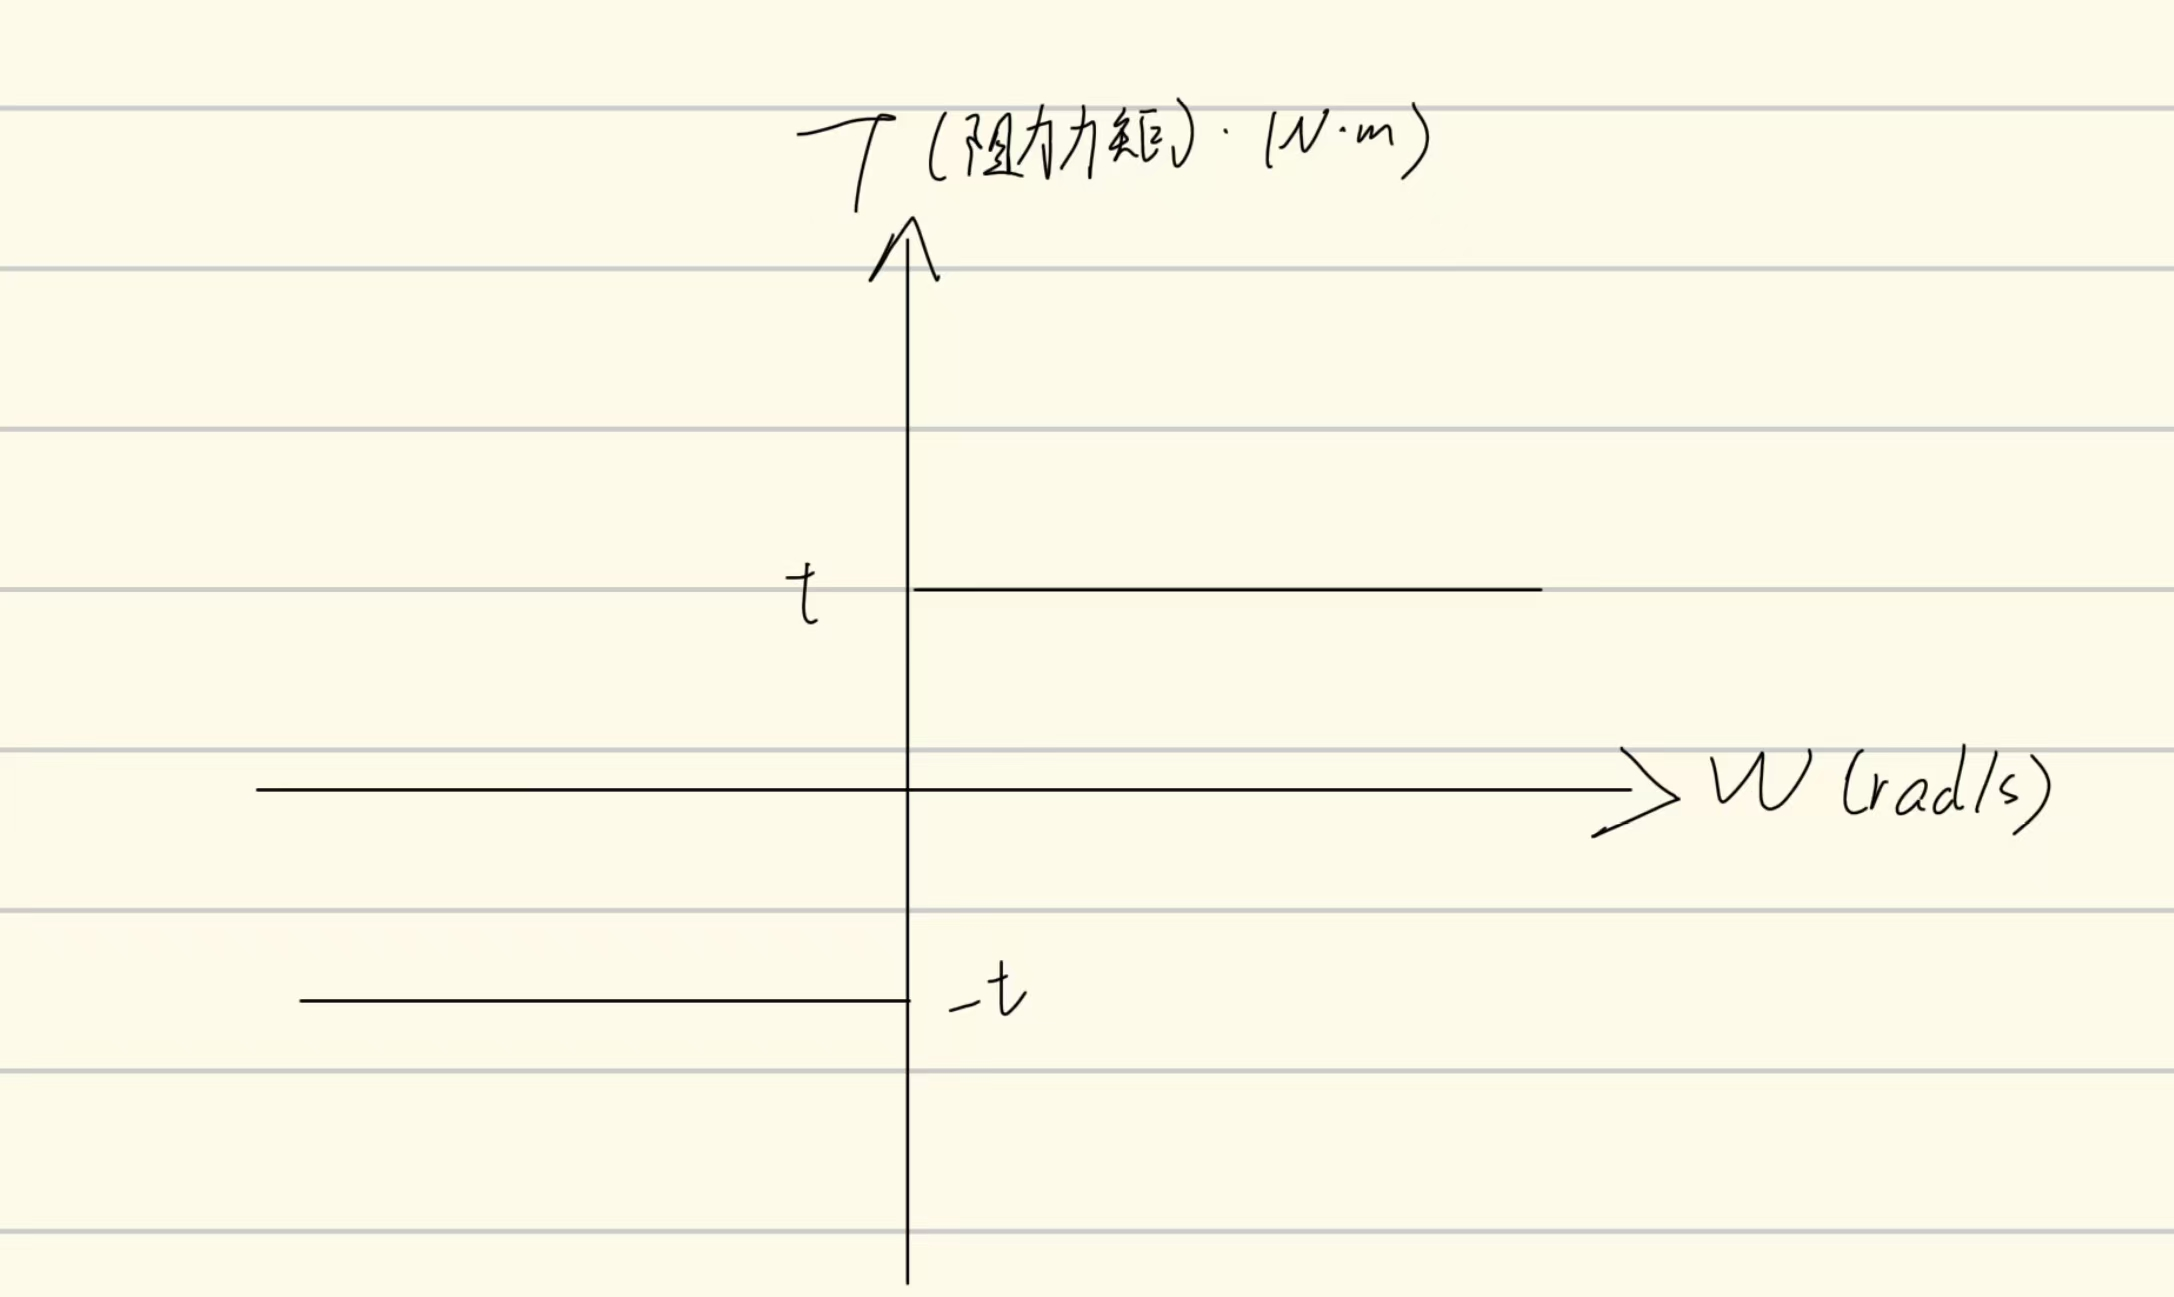 T (阻力力矩)·(N·m)
t
W (rad/s)
-t